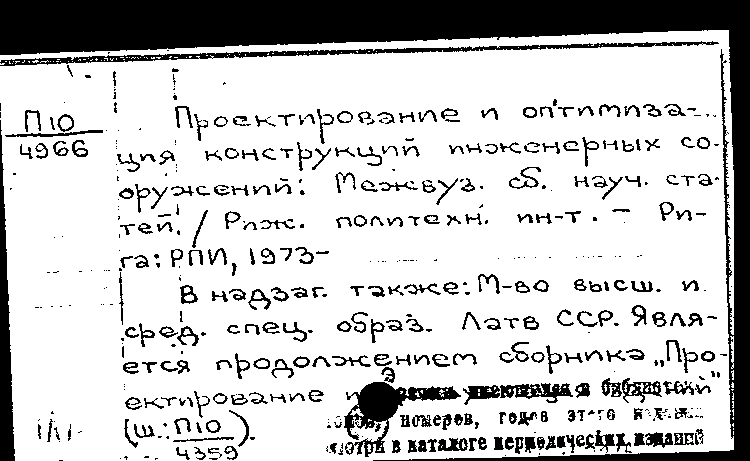 П10
4966
Проектирование и оптимиза-
ция конструкций инженерных со-
оружений: Межвуз. сб. науч. ста-
тей. / Риж. политехн. ин-т. – Ри-
га: РПИ, 1973-
В надзаг. также: М-во высш. и
сред. спец. образ. Латв ССР. Явля-
ется продолжением сборника „Про-
ектирование и
имеющихся в библиотеке
(ш.: П10
4359).
номеров, годов этого издания
смотри в каталоге периодических изданий